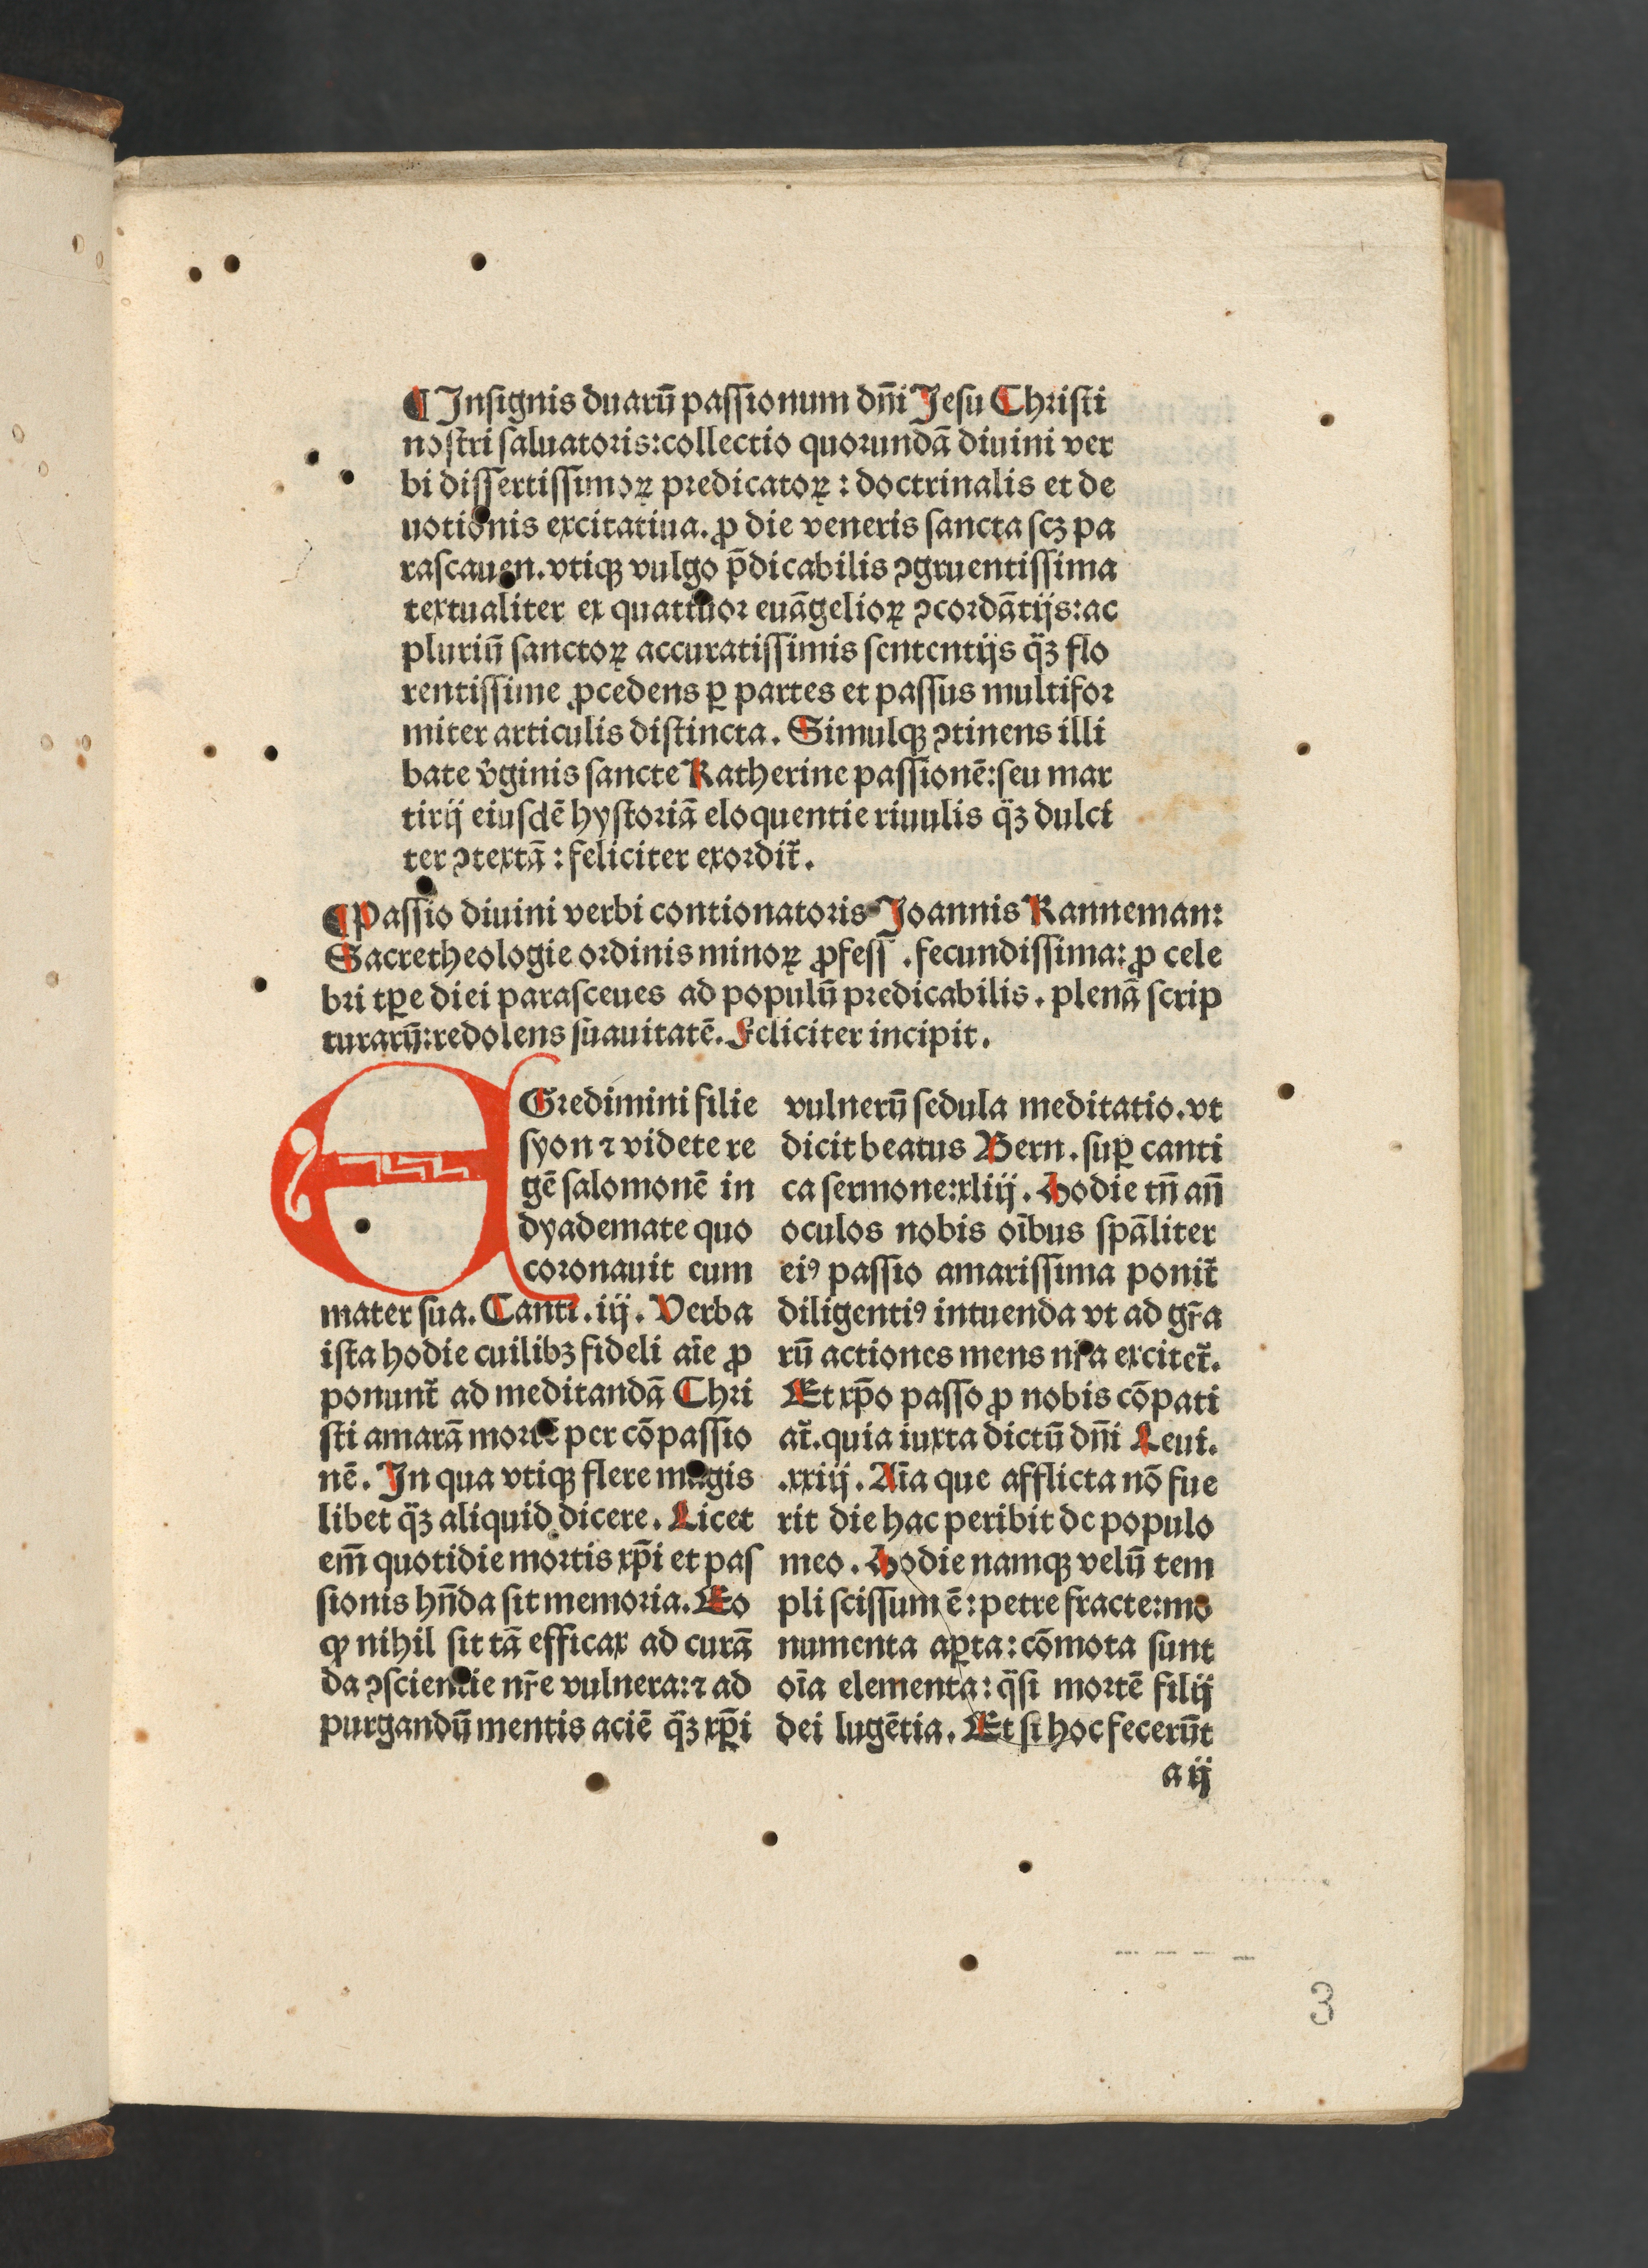 ¶ Insignis duarū passionum dn̄i Jesu Christi
nostri saluatoris: collectio quorundā diuini ver
bi dissertissimoꝝ predicatoꝝ: doctrinalis et de
uotionis excitatiua. ꝓ die veneris sancta scꝫ pa
rascauen. vtiqꝫ vulgo p̄dicabilis ꝯgruentissima
textualiter ex quattuor euāgelioꝝ ꝯcordātijs: ac
pluriū sanctoꝝ accuratissimis sententijs q̈ꝫ flo
rentissime ꝓcedens ꝑ partes et passus multifor
miter articulis distincta. Simulqꝫ ꝯtinens illi
bate v̓ginis sancte Katherine passionē: seu mar
tirij eiusdē hystoriā eloquentie riuulis q̈ꝫ dulci
ter ꝯtextā: feliciter exordit̄.
¶ Passio diuini verbi contionatoris Joannis Kanneman:
Sacre theologie ordinis minoꝝ ꝓfess. fecundissima: ꝓ cele
bri tꝑe diei parasceues ad populū predicabilis. plenā scrip
turarū: redolens suauitatē. Feliciter incipit.
EGredimini filie
syon ⁊ videte re
gē salomonē in
dyademate quo
coronauit eum
mater sua. Canti. iij. Verba
ista hodie cuilibꝫ fideli aīe ꝓ
ponunt̄ ad meditandā Chri
sti amarā mortē per cōpassio
nē. In qua vtiqꝫ flere magis
libet q̈ꝫ aliquid dicere. Licet
em̄ quotidie mortis xp̄i et pas
sionis hn̄da sit memoria. Eo
ꝙ nihil sit tā efficax ad curā
da ꝯscientie nr̄e vulnera: ⁊ ad
purgandū mentis aciē q̈ꝫ xp̄i
vulnerū sedula meditatio. vt
dicit beatus Bern. suꝑ canti
ca sermone: xliij. Hodie tn̄ an̄
oculos nobis oībus spāliter
eiꝰ passio amarissima ponit̄
diligentiꝰ intuenda vt ad gr̄a
rū actiones mens nr̄a excitet̄.
Et xp̄o passo ꝓ nobis cōpati
at̄. quia iuxta dictū dn̄i Leui.
.xxiij. Aīa que afflicta nō fue
rit die hac peribit de populo
meo. Hodie namqꝫ velū tem
pli scissum ē: petre fracte: mo
numenta aꝑta: cōmota sunt
oīa elementa: q̈si mortē filij
dei lugētia. Et si hoc fecerūt
a ij
3